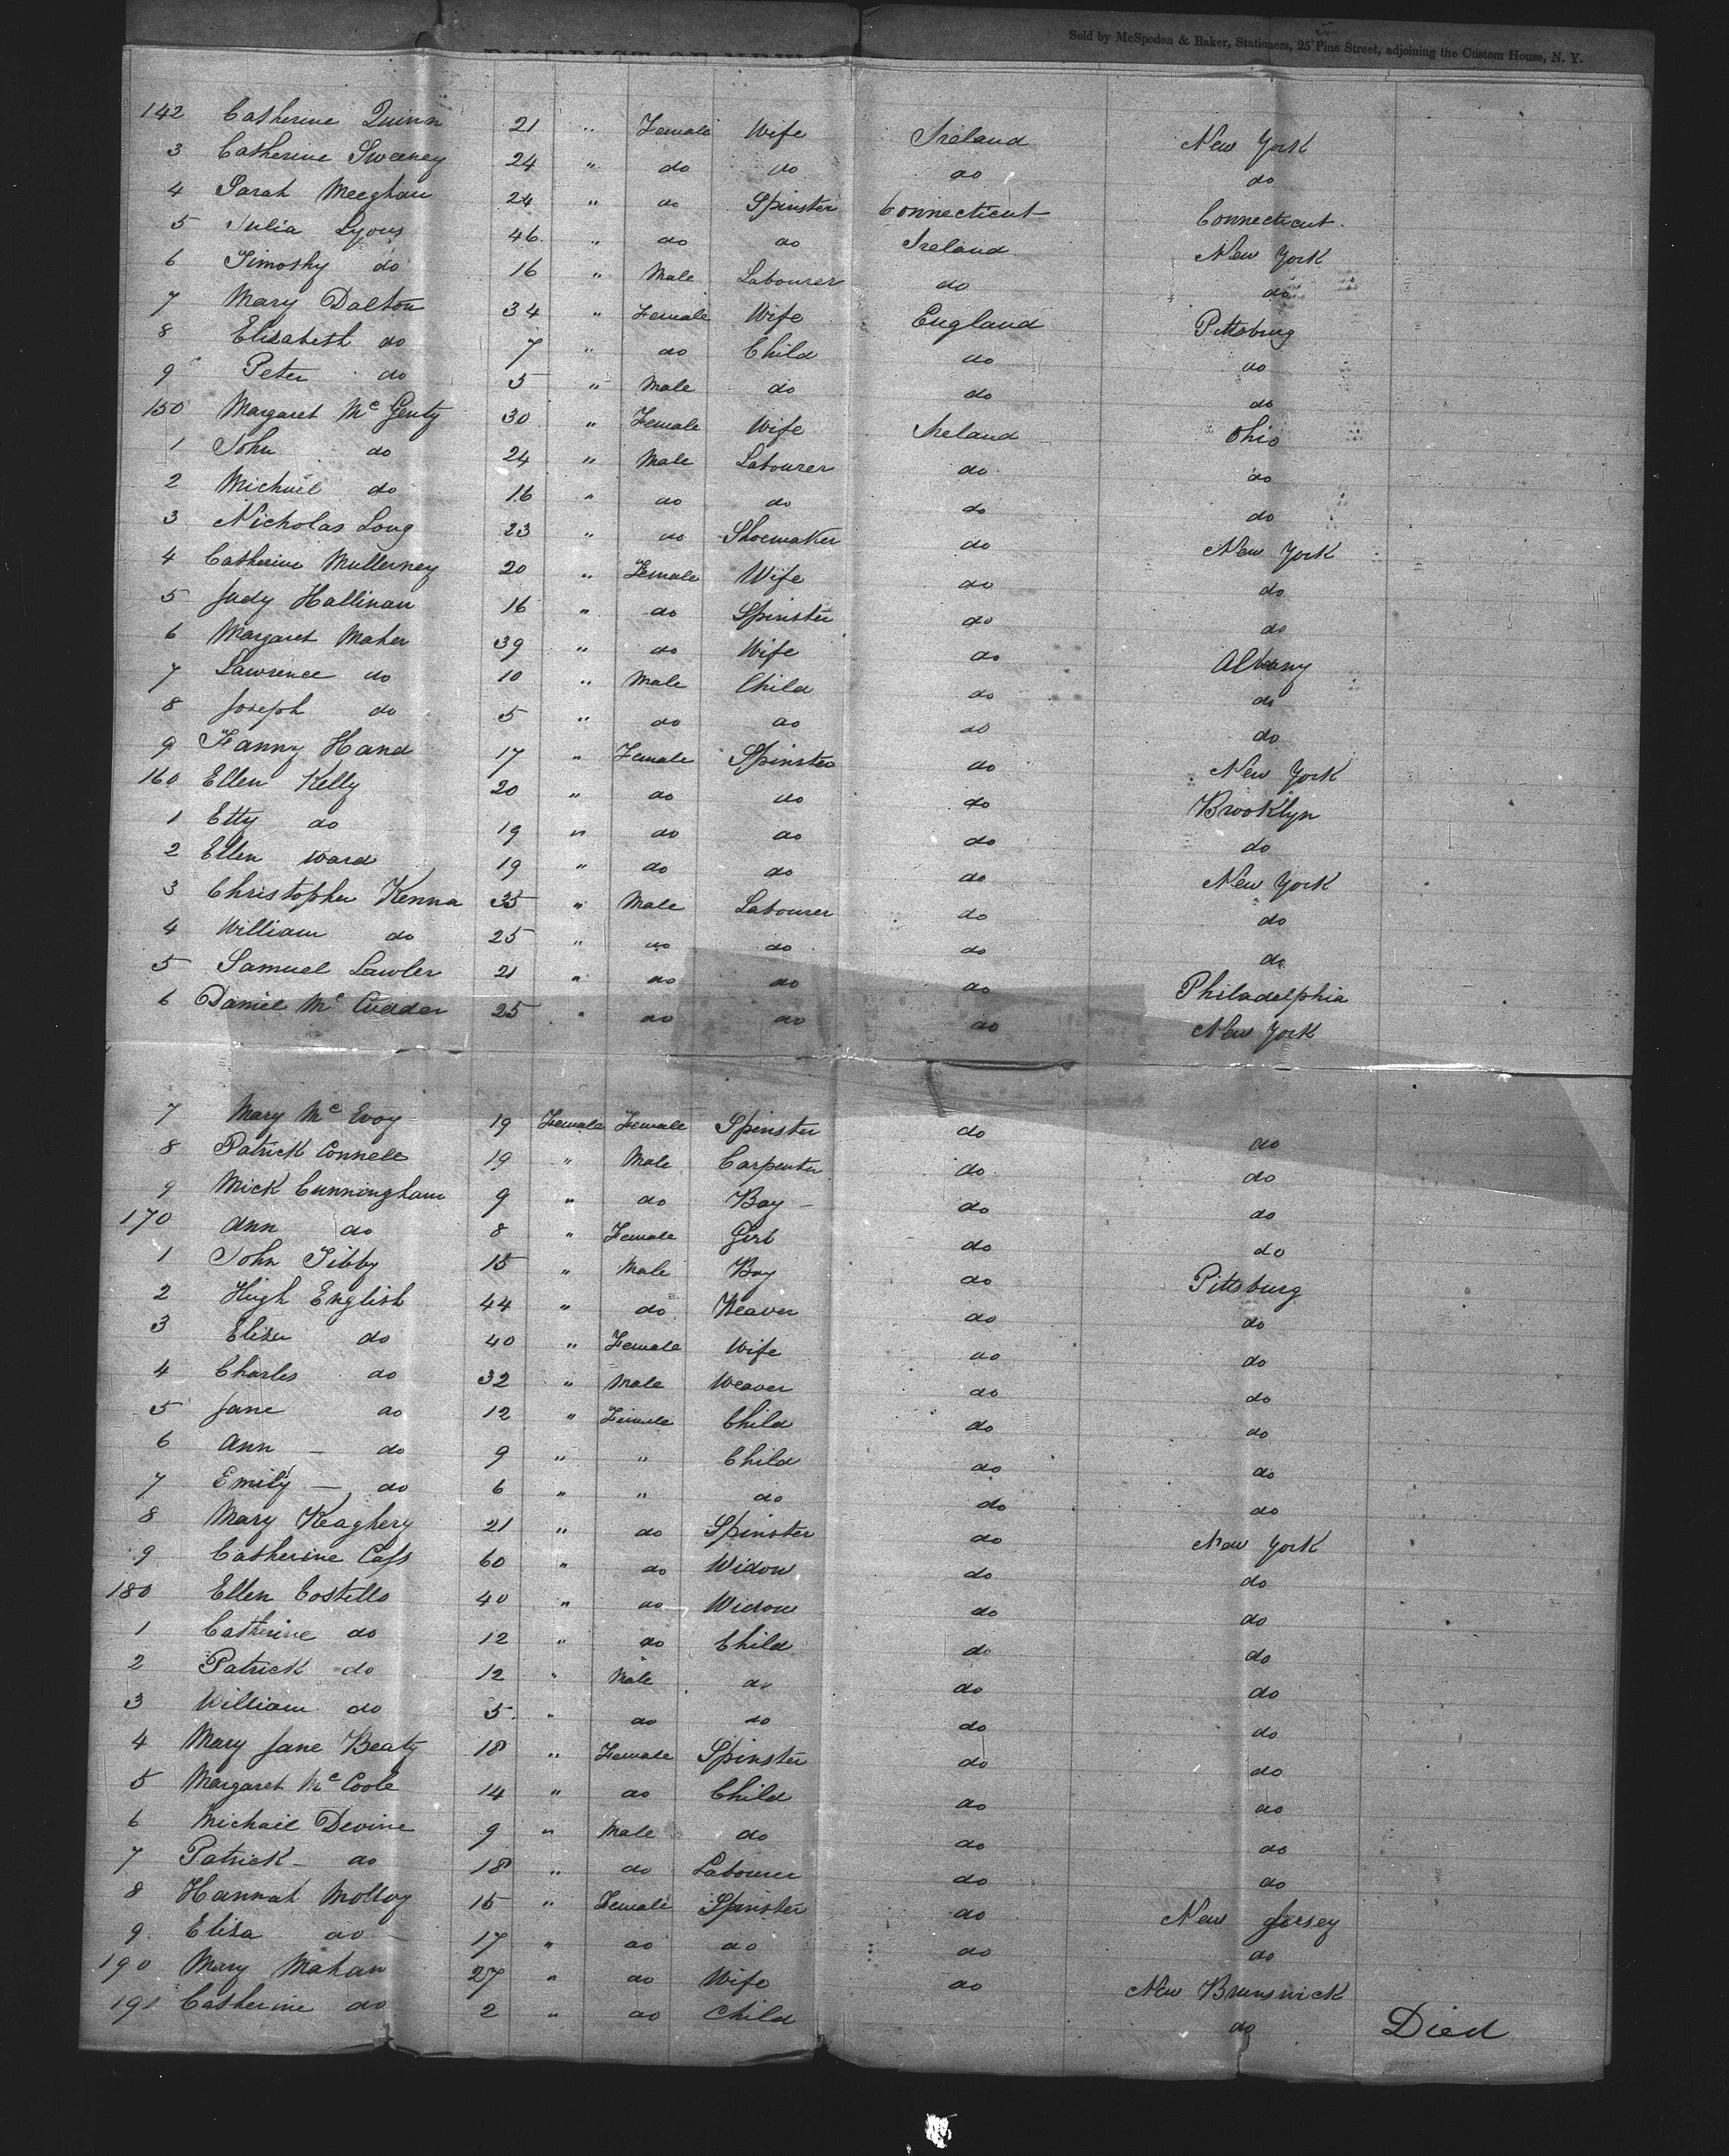 Sold by McSpedon & Baker, Stationers, 25 Pine Street, adjoining the Custom House, N. Y.
142 Catherine Quinn 21 " Female Wife Ireland New York
3 Catherine Sweeney 24 " do do do do
4 Sarah Meeghan 24 " do Spinster Connecticut Connecticut.
5 Julia Lyons 46 " do do Ireland New York
6 Timothy do 16 " Male Labourer do do
7 Mary Dalton 34 " Female Wife England Pittsburg
8 Elisabeth do 7 " do Child do do
9 Peter do 5 " Male do do do
150 Margaret Mc Genty 30 " Female Wife Ireland Ohio
1 John do 24 " Male Labourer do do
2 Michael do 16 " do do do do
3 Nicholas Long 23 " do Shoemaker do New York
4 Catherine Mullerney 20 " Female Wife do do
5 Judy Hallinan 16 " do Spinster do do
6 Margaret Maher 39 " do Wife do Albany
7 Lawrence do 10 " Male Child do do
8 Joseph do 5 " do do do do
9 Fanny Hand 17 " Female Spinster do New York
160 Ellen Kelly 20 " do do do Brooklyn
1 Etty do 19 " do do do do
2 Ellen Ward 19 " do do do New York
3 Christopher Kenna 35 " Male Labourer do do
4 William do 25 " do do do do
5 Samuel Lawler 21 " do do do Philadelphia
6 Daniel Mc Cudden 25 " do do do New York
7 Mary Mc Evoy 19 Female Female Spinster do do
8 Patrick Connell 19 " Male Carpenter do do
9 Mick Cunningham 9 " do Boy do do
170 Ann do 8 " Female Girl do do
1 John Tibby 15 " Male Boy do Pittsburg
2 Hugh English 44 " do Weaver do do
3 Eliza do 40 " Female Wife do do
4 Charles do 32 " Male Weaver do do
5 Jane do 12 " Female Child do do
6 Ann - do 9 " " Child do do
7 Emily - do 6 " " do do do
8 Mary Keaghery 21 " do Spinster do New York
9 Catherine Cass 60 " do Widow do do
180 Ellen Costello 40 " do Widow do do
1 Catherine do 12 " do Child do do
2 Patrick do 12 " Male do do do
3 William do 5 " do do do do
4 Mary Jane Beaty 18 " Female Spinster do do
5 Margaret Mc Coole 14 " do Child do do
6 Michael Devine 9 " Male do do do
7 Patrick do 18 " do Labourer do do
8 Hannah Molloy 15 " Female Spinster do New Jersey
9 Eliza do 17 " do do do do
190 Mary Mahan 27 " do Wife do New Brunswick
191 Catherine do 2 " do Child do Died